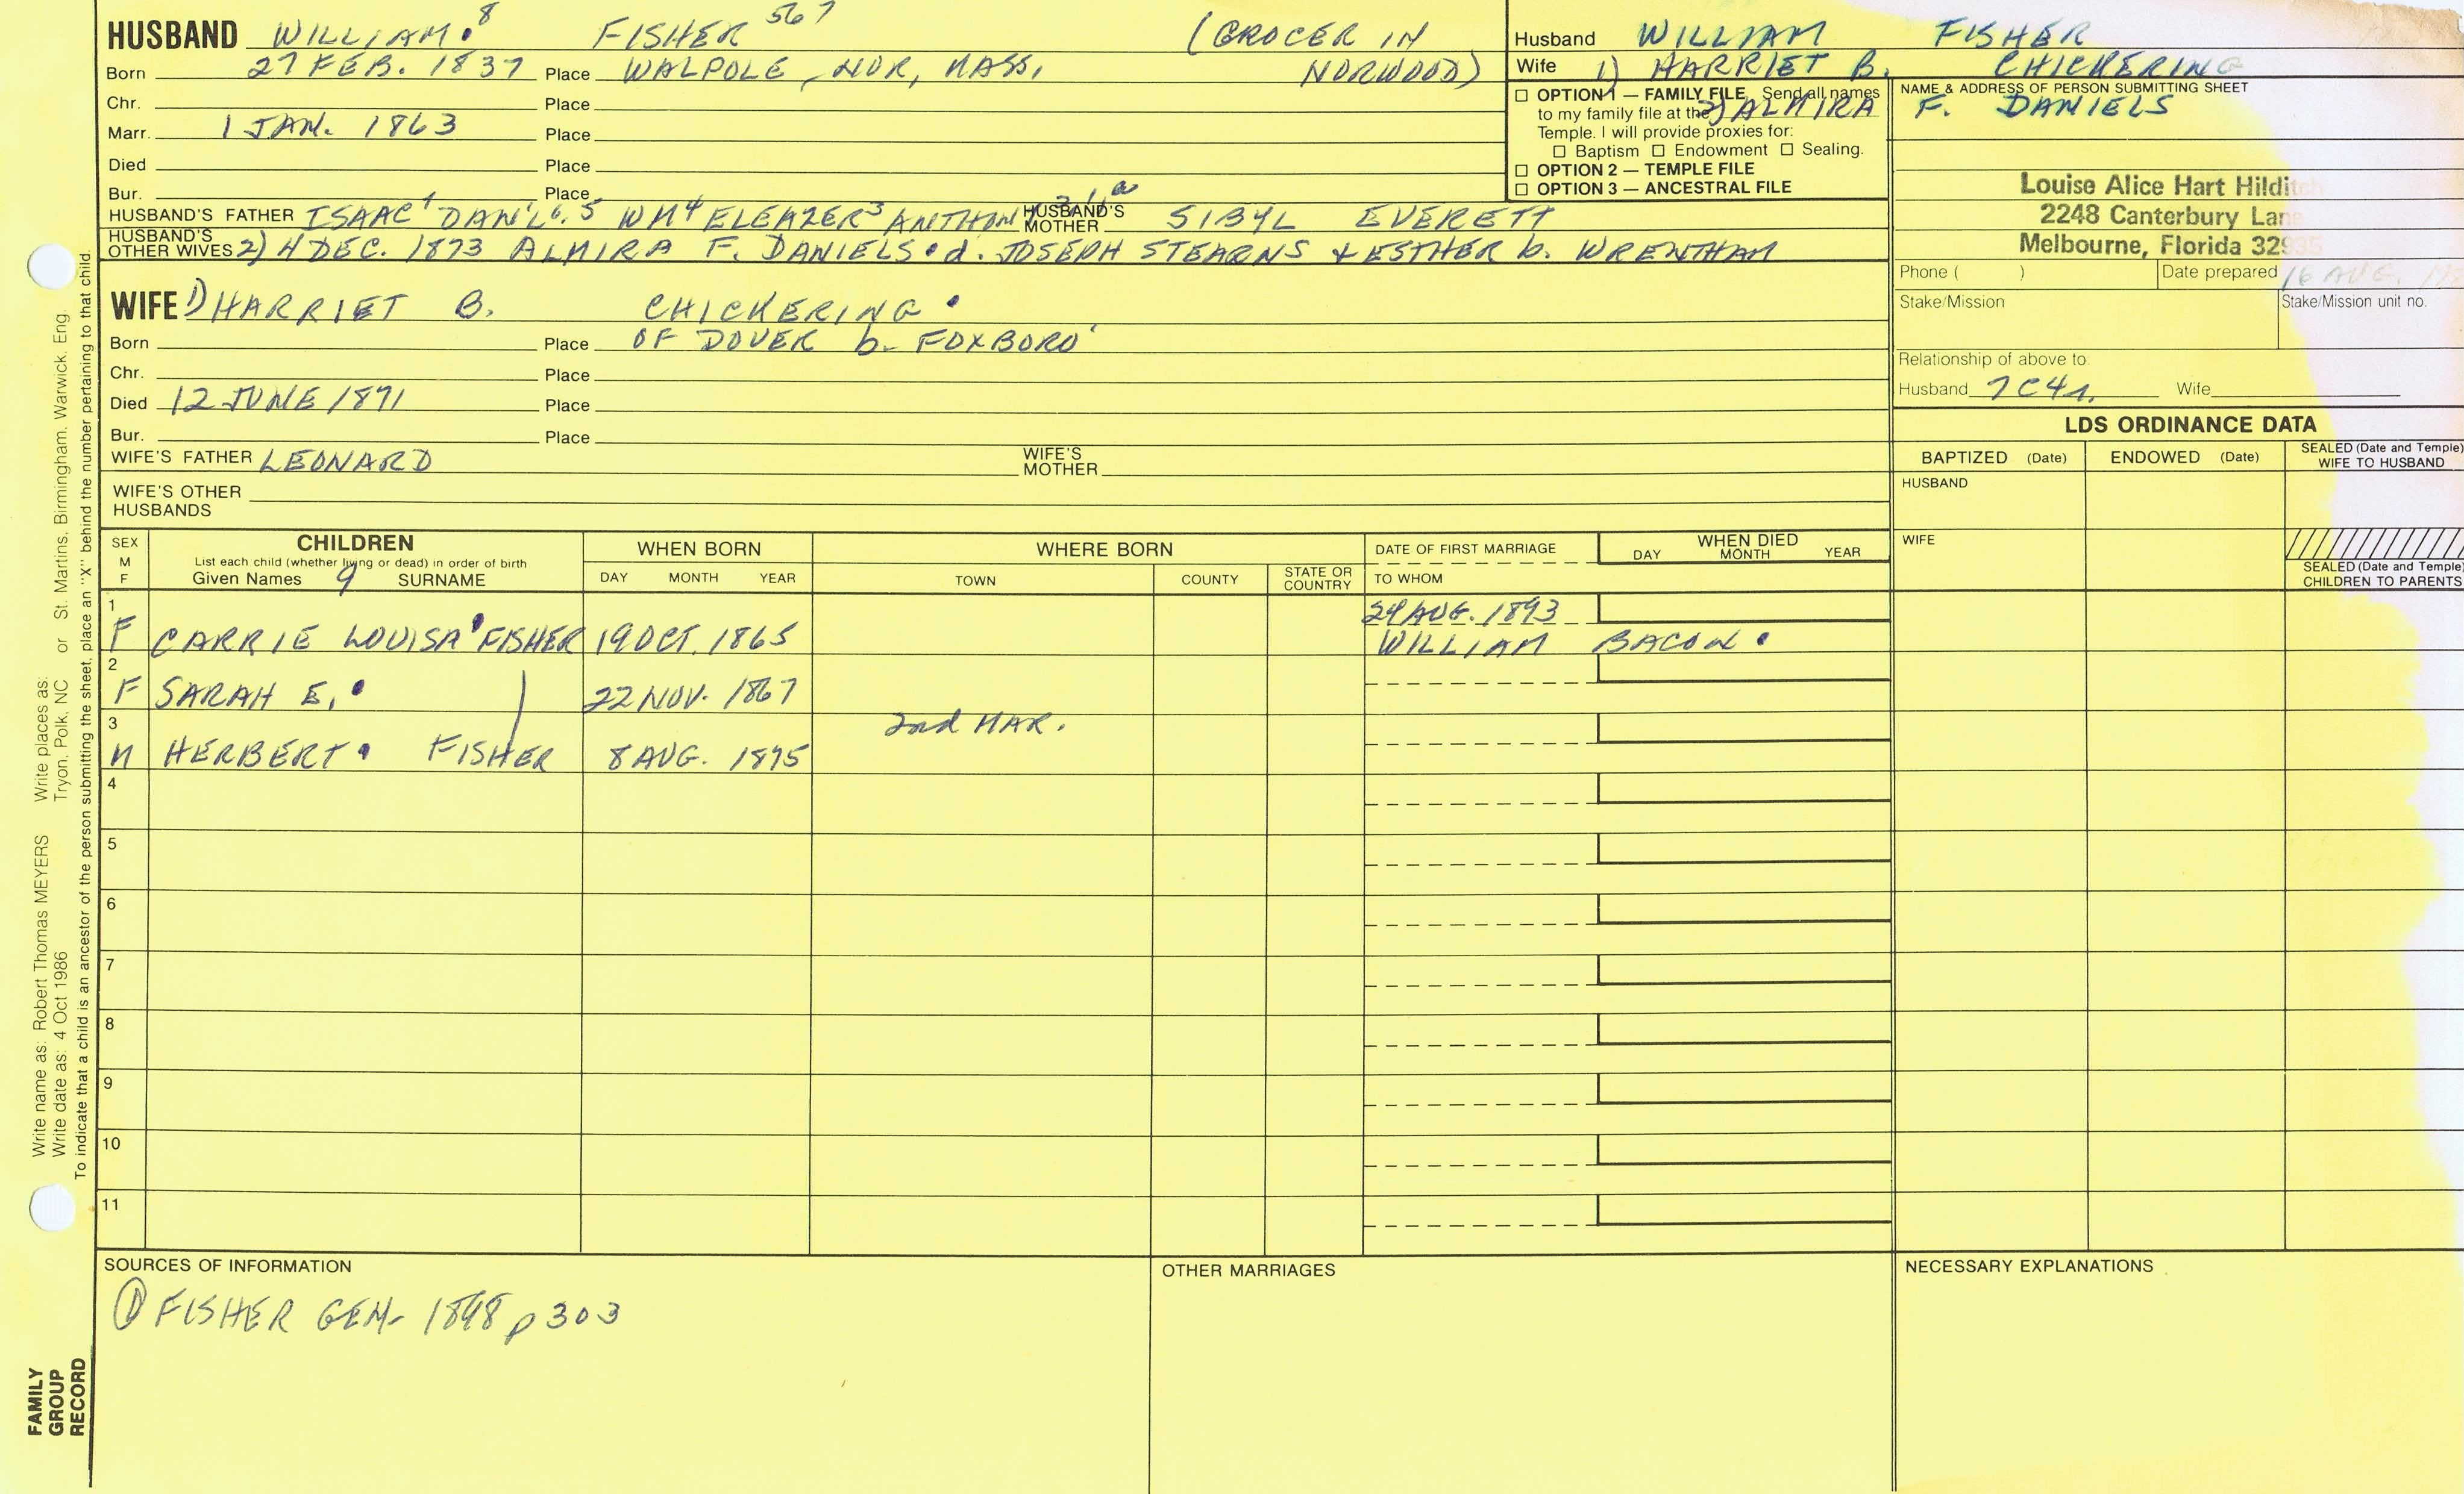 HUSBAND WILLIAM 8 FISHER 567 (GROCER IN
Born 27 FEB. 1837 Place WALPOLE, NOR, MASS, NORWOOD)
Chr. Place
Marr. 1 JAN. 1863 Place
Died Place
Bur. Place
HUSBAND'S FATHER ISAAC DAN'L 6, 5 WM 4 ELEAZER 3 ANTHONY HUSBAND'S MOTHER SIBYL EVERETT
HUSBAND'S OTHER WIVES 2) 4 DEC. 1873 ALMIRA F. DANIELS • d. JOSEPH STEARNS & ESTHER b. WRENTHAM
WIFE 1) HARRIET B. CHICKERING •
Born Place OF DOVER b. FOXBORO'
Chr. Place
Died 12 JUNE 1871 Place
Bur. Place
WIFE'S FATHER LEONARD WIFE'S MOTHER
WIFE'S OTHER HUSBANDS
Husband WILLIAM FISHER
Wife 1) HARRIET B. CHICKERING
2) ALMIRA F. DANIELS
☐ OPTION 1 — FAMILY FILE Send all names
to my family file at the
Temple. I will provide proxies for:
☐ Baptism ☐ Endowment ☐ Sealing.
☐ OPTION 2 — TEMPLE FILE
☐ OPTION 3 — ANCESTRAL FILE
NAME & ADDRESS OF PERSON SUBMITTING SHEET
Louise Alice Hart Hilditch
2248 Canterbury Lane
Melbourne, Florida 32935
Phone ( ) Date prepared 16 AUG.
Stake/Mission Stake/Mission unit no.
Relationship of above to:
Husband 7C4r. Wife
LDS ORDINANCE DATA
BAPTIZED (Date) ENDOWED (Date) SEALED (Date and Temple) WIFE TO HUSBAND
HUSBAND
WIFE
SEALED (Date and Temple) CHILDREN TO PARENTS
SEX M F
CHILDREN
List each child (whether living or dead) in order of birth
Given Names 9 SURNAME
WHEN BORN
DAY MONTH YEAR
WHERE BORN
TOWN COUNTY STATE OR COUNTRY
DATE OF FIRST MARRIAGE
TO WHOM
WHEN DIED
DAY MONTH YEAR
1 F CARRIE LOUISA • FISHER 19 OCT. 1865 24 AUG. 1893
WILLIAM BACON •
2 F SARAH E. • 22 NOV. 1867
2nd MAR.
3 M HERBERT • FISHER 8 AUG. 1875
4
5
6
7
8
9
10
11
SOURCES OF INFORMATION
① FISHER GEN- 1898 p 303
OTHER MARRIAGES
NECESSARY EXPLANATIONS
Write name as: Robert Thomas MEYERS Write places as: Tryon, Polk, NC or St. Martins, Birmingham, Warwick, Eng.
Write date as: 4 Oct 1986
To indicate that a child is an ancestor of the person submitting the sheet, place an "X" behind the number pertaining to that child.
FAMILY
GROUP
RECORD